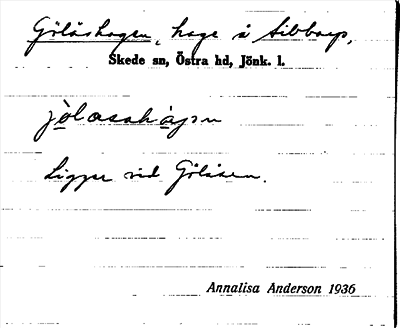 Gölåshagen, hage i Sibbarp,
Skede sn, Östra hd, Jönk. l.
jölasshàgen
Ligger vid Gölåsen.
Annalisa Anderson 1936